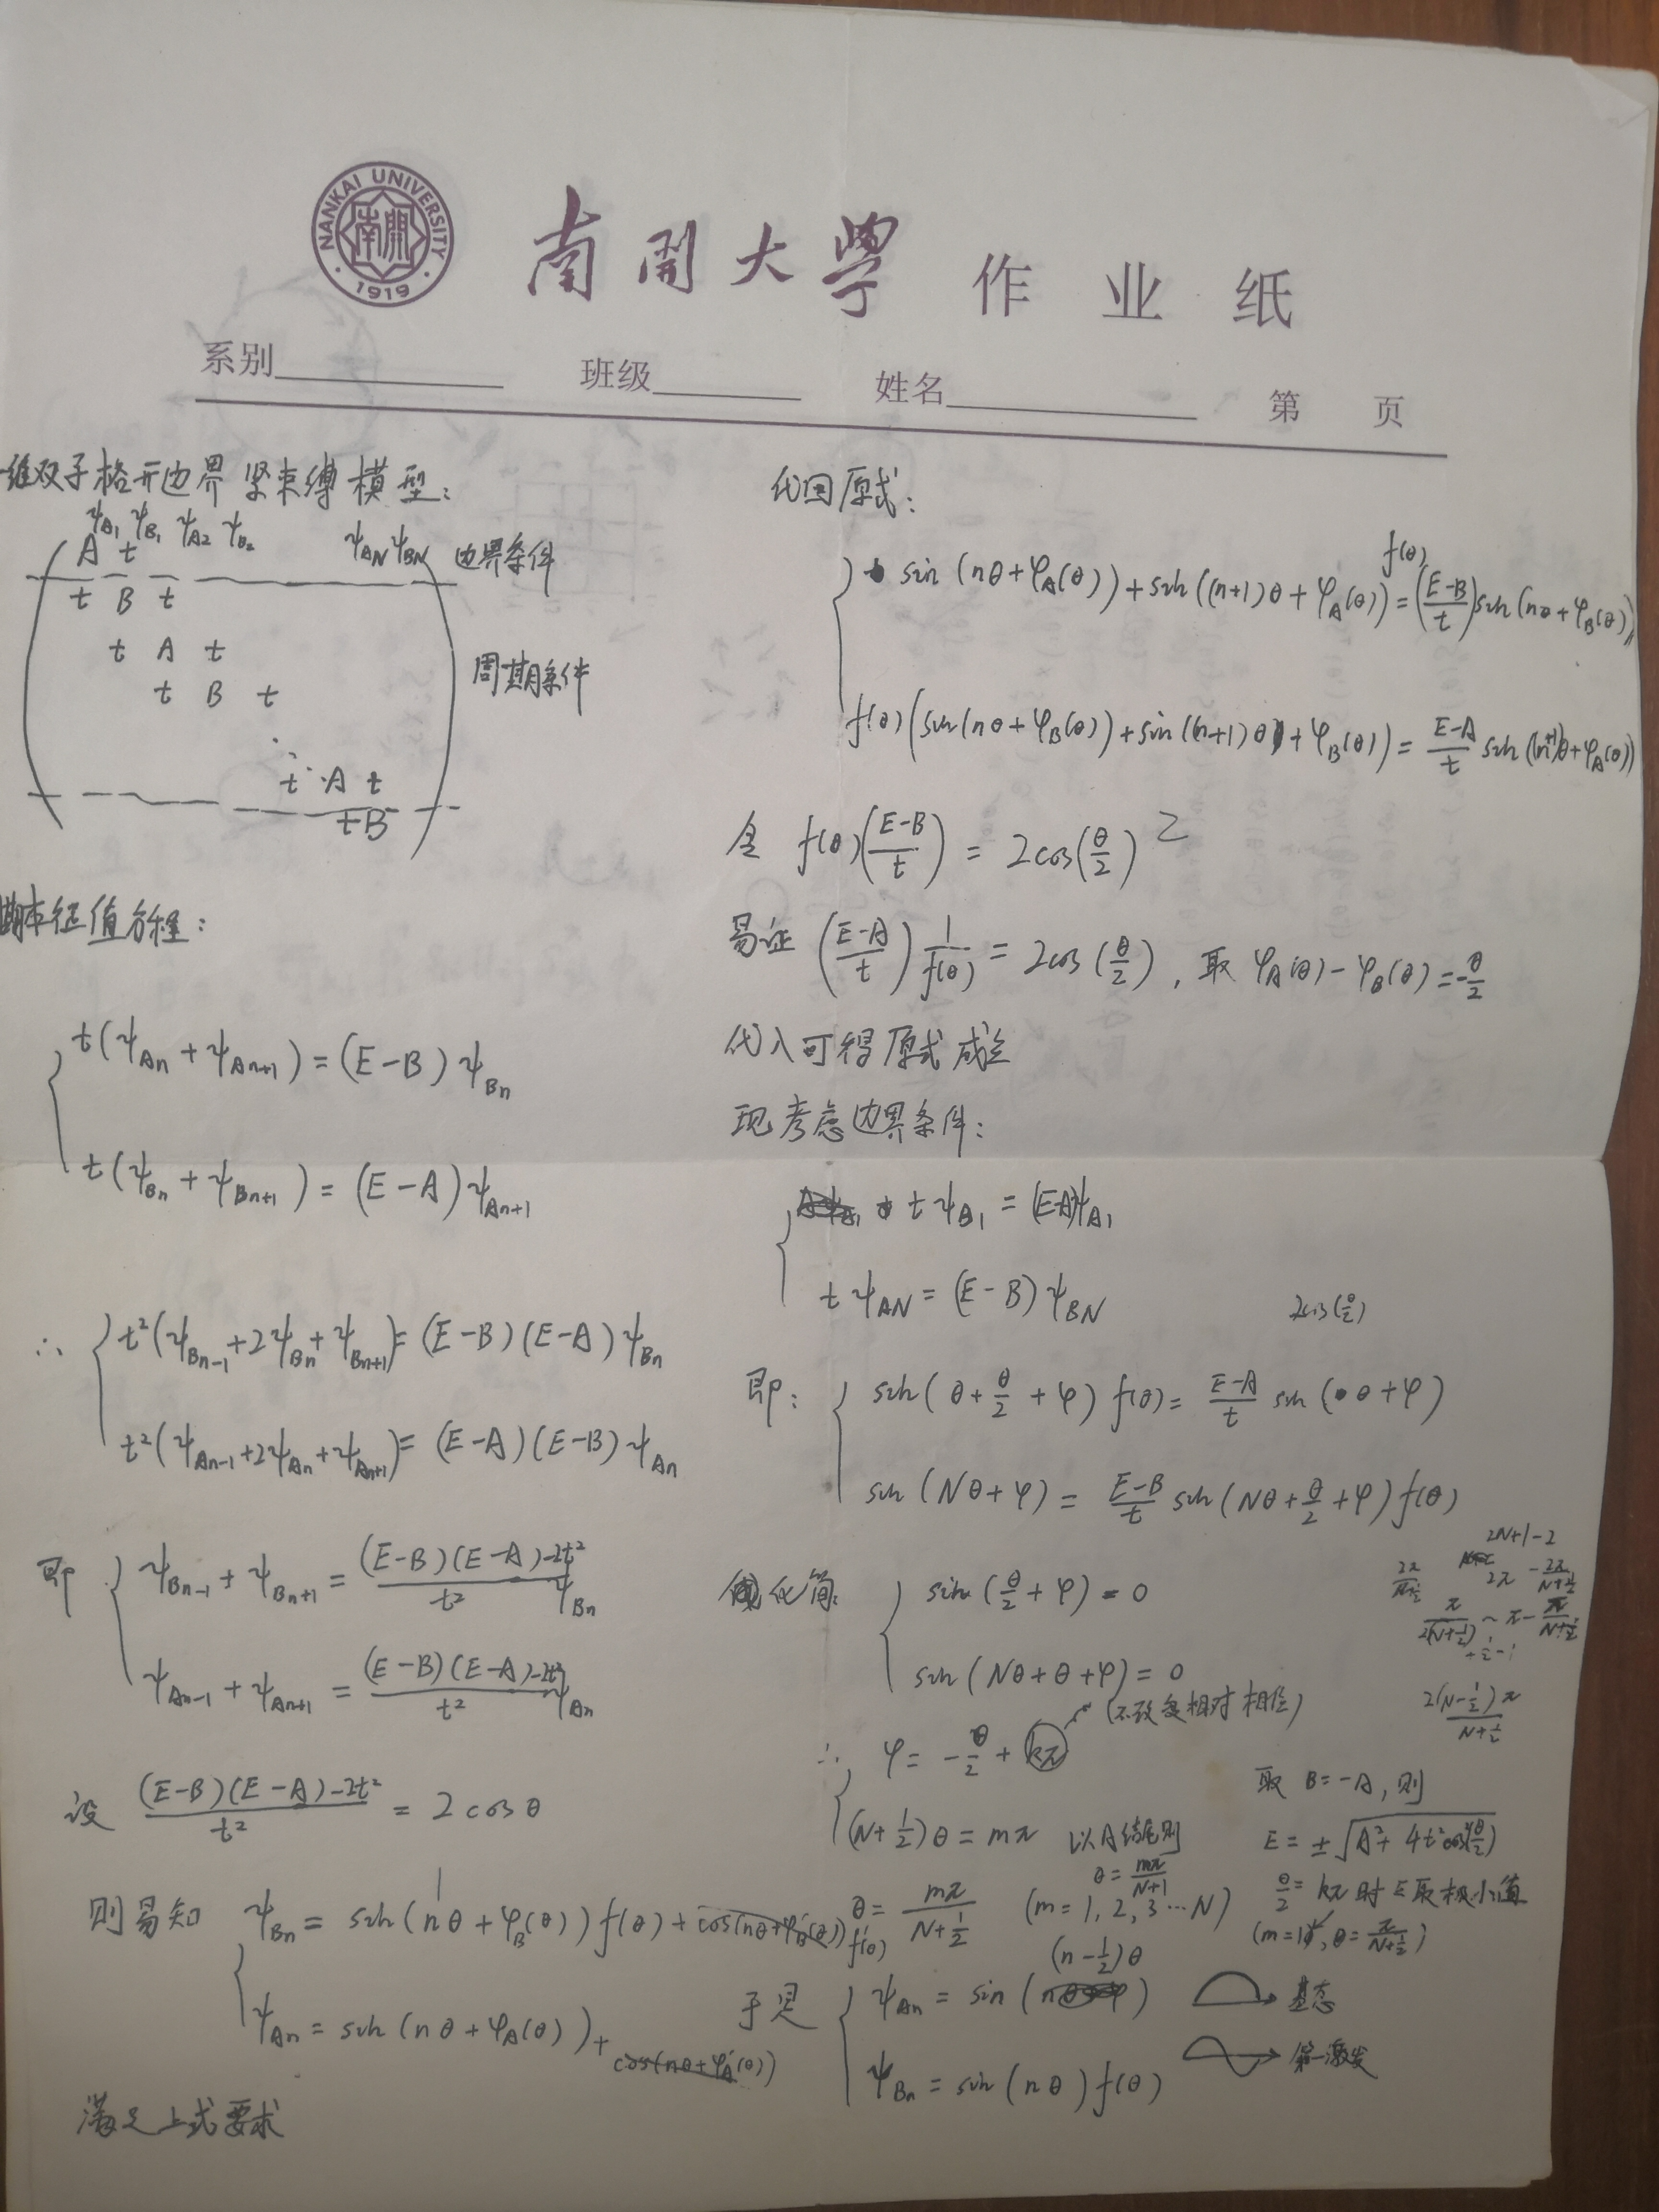 NANKAI UNIVERSITY
1919
南開大學 作业纸
系别 班级 姓名 第 页
维双子格开边界紧束缚模型:
ψA1 ψB1 ψA2 ψB2 ψAN ψBN 边界条件
A t
t B t
t A t 周期条件
t B t
t A t
t B
本征值方程:
t(ψAn + ψAn+1) = (E-B)ψBn
t(ψBn + ψBn+1) = (E-A)ψAn+1
∴ t²(ψBn-1 + 2ψBn + ψBn+1) = (E-B)(E-A)ψBn
t²(ψAn-1 + 2ψAn + ψAn+1) = (E-A)(E-B)ψAn
即 ψBn-1 + ψBn+1 = (E-B)(E-A)-2t² / t² ψBn
ψAn-1 + ψAn+1 = (E-B)(E-A)-2t² / t² ψAn
设 (E-B)(E-A)-2t² / t² = 2cosθ
则易知 ψBn = sin(nθ+φB(θ))f(θ) + cos(nθ+φB'(θ))f'(θ)
ψAn = sin(nθ+φA(θ)) + cos(nθ+φA'(θ))
满足上式要求
代回原式:
sin(nθ+φA(θ)) + sin((n+1)θ+φA(θ)) = f(θ)(E-B / t)sin(nθ+φB(θ))
f(θ)(sin(nθ+φB(θ)) + sin((n+1)θ+φB(θ))) = E-A / t sin((n+1)θ+φA(θ))
令 f(θ)(E-B / t) = 2cos(θ/2)
易证 (E-A / t) 1 / f(θ) = 2cos(θ/2), 取 φA(θ)-φB(θ) = -θ/2
代入可得原式成立
现考虑边界条件:
tψB1 = (E-A)ψA1
tψAN = (E-B)ψBN
2cos(θ/2)
即: sin(θ+θ/2+φ)f(θ) = E-A / t sin(θ+φ)
sin(Nθ+φ) = E-B / t sin(Nθ+θ/2+φ)f(θ)
2N+1-2
化简: sin(θ/2+φ) = 0
sin(Nθ+θ+φ) = 0
(不改变相对相位)
2(N-1/2)π / N+1/2
∴ φ = -θ/2 + kπ
(N+1/2)θ = mπ 以A结尾则
θ = mπ / N+1
θ = mπ / N+1/2 (m=1,2,3…N)
取 B=-A, 则
E = ±√(A²+4t²cos²(θ/2))
θ/2 = kπ时E取极小值
(m=1, θ=π / N+1/2)
于是 ψAn = sin((n-1/2)θ) 基态
ψBn = sin(nθ)f(θ) 第一激发